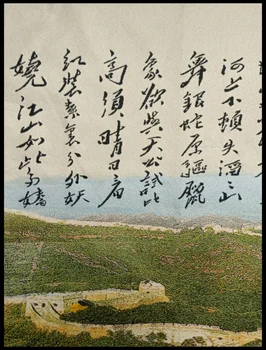 河上下頓失滔滔山
舞銀蛇原驅臘
象欲與天公試比
高須晴日看
紅裝素裹分外妖
嬈江山如此多嬌